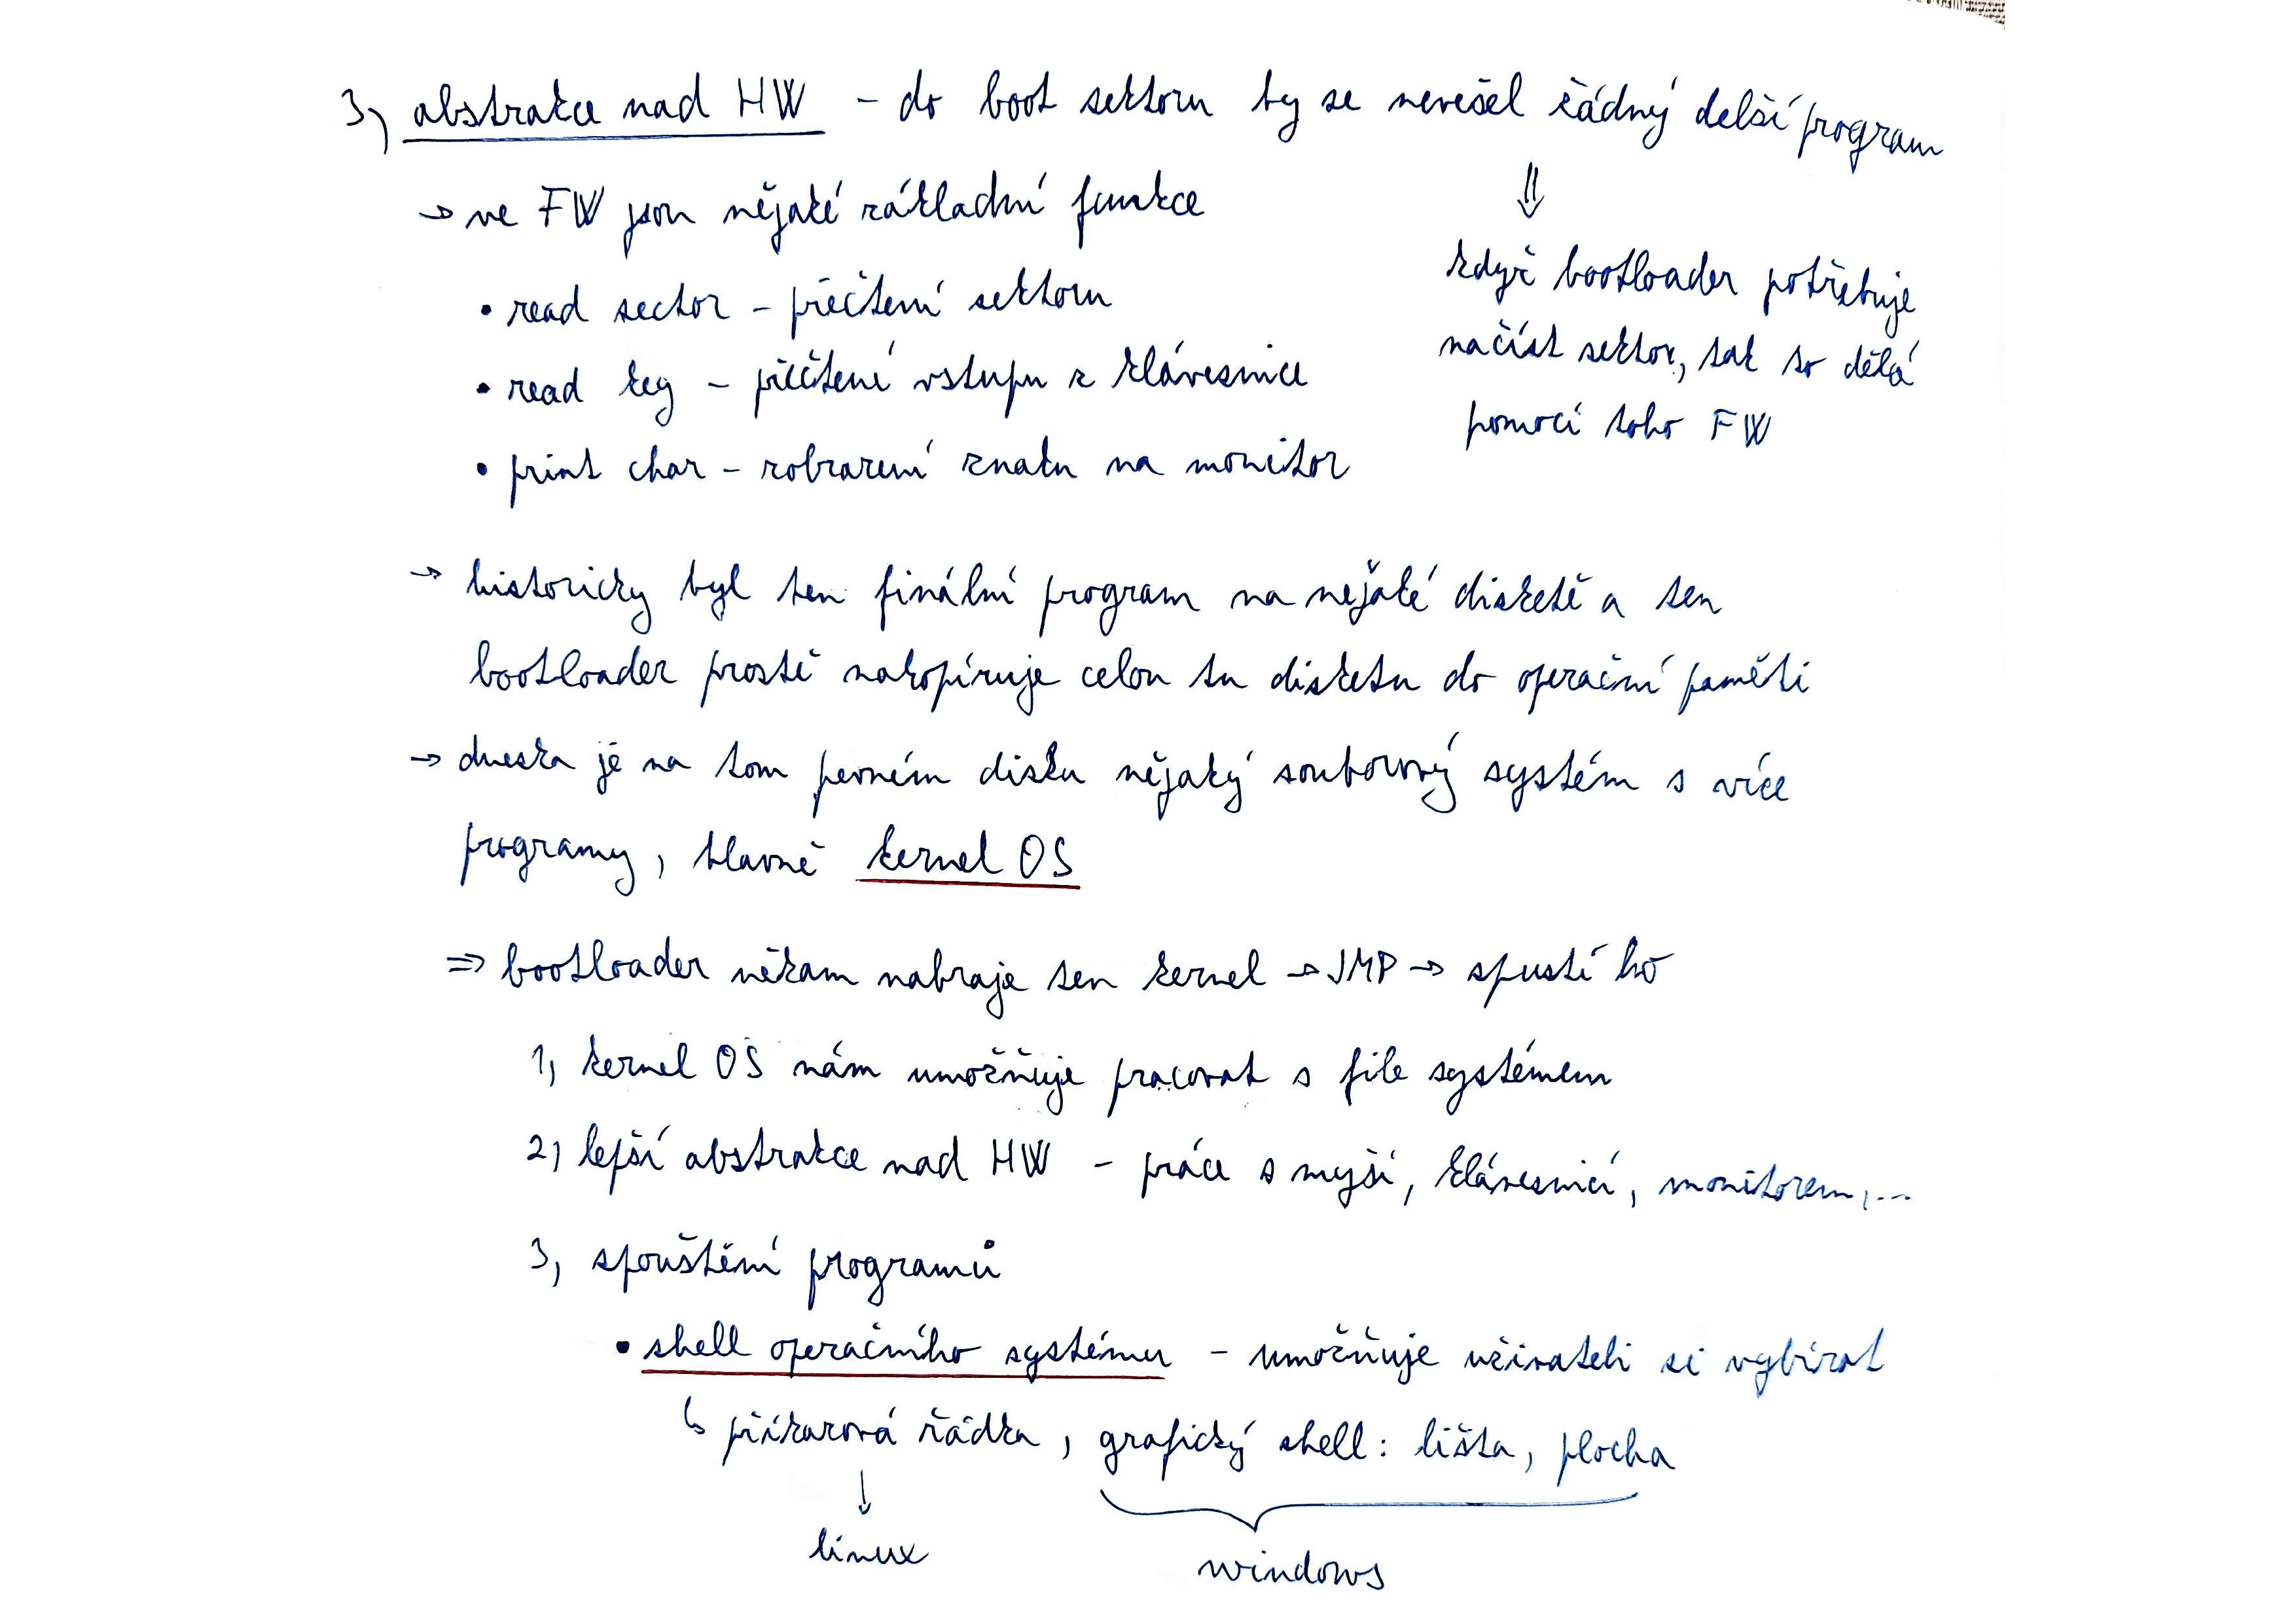 3) abstrakce nad HW - do boot sektoru by se nevešel žádný delší program
⇓
→ ve FW jsou nějaké základní funkce
když bootloader potřebuje
načíst sektor, tak to dělá
pomocí toho FW
• read sector - přečtení sektoru
• read key - přečtení vstupu z klávesnice
• print char - zobrazení znaku na monitor
→ historicky byl ten finální program na nějaké disketě a ten
bootloader prostě nakopíruje celou tu disketu do operační paměti
→ dneska je na tom pevném disku nějaký souborový systém s více
programy, hlavně kernel OS
⇒ bootloader někam nahraje ten kernel → JMP → spustí ho
1, kernel OS nám umožňuje pracovat s file systémem
2) lepší abstrakce nad HW - práce s myší, klávesnicí, monitorem,...
3, spouštění programů
• shell operačního systému - umožňuje uživateli si vybírat
↳ příkazová řádka, grafický shell: lišta, plocha
↓
linux
windows